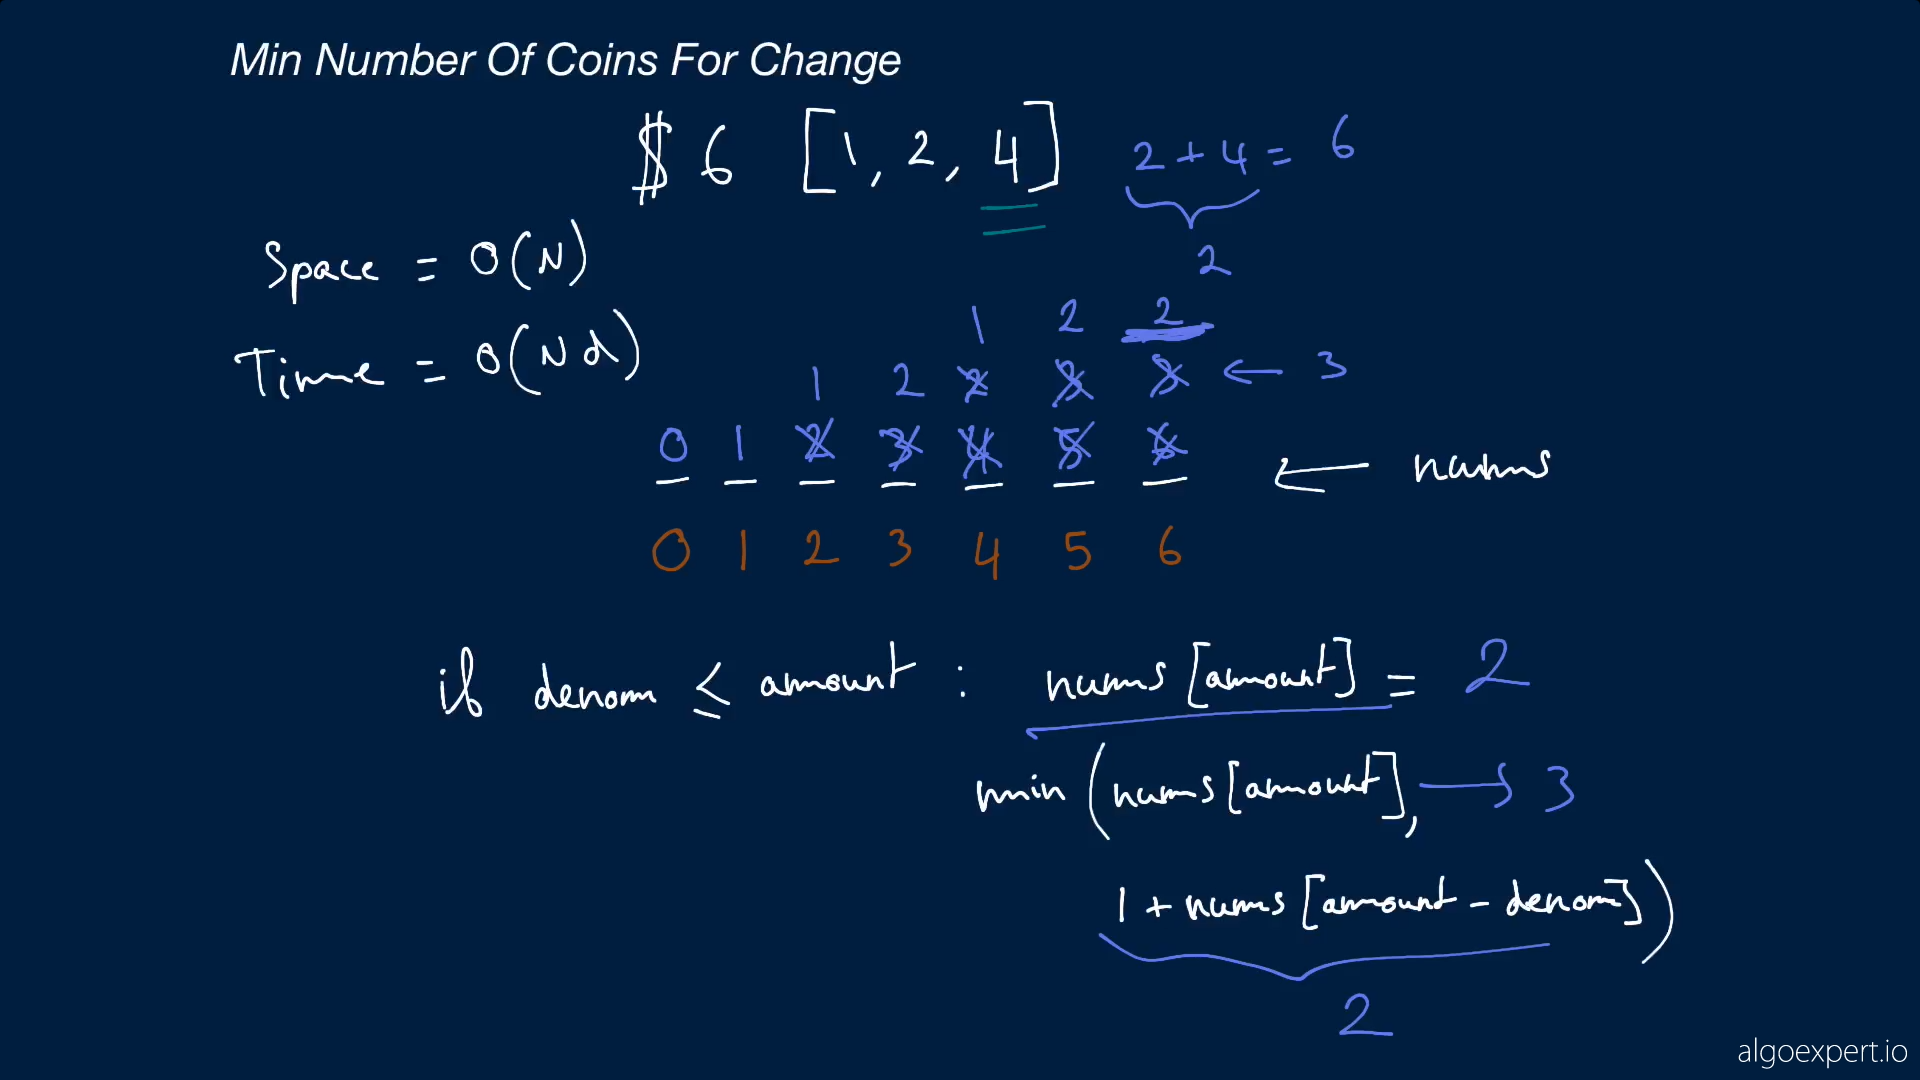 Min Number Of Coins For Change
$ 6 [1, 2, 4] 2 + 4 = 6
2
Space = O(N)
Time = O(Nd)
1 2 2
1 2 2 3 3 ← 3
0 1 2 3 4 5 6 ← nums
0 1 2 3 4 5 6
if denom ≤ amount : nums [amount] = 2
min (nums [amount], → 3
1 + nums [amount - denom])
2
algoexpert.io